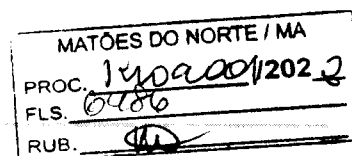 MATÕES DO NORTE / MA
PROC. 1402001/2022
FLS. 0486
RUB.